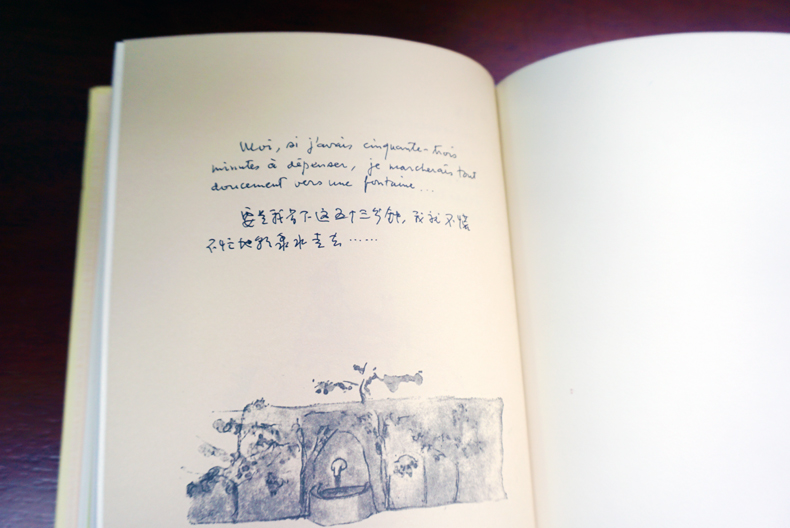 Moi, si j'avais cinquante-trois
minutes à dépenser, je marcherais tout
doucement vers une fontaine...
要是我省下这五十三分钟, 我就不慌
不忙地朝泉水走去……